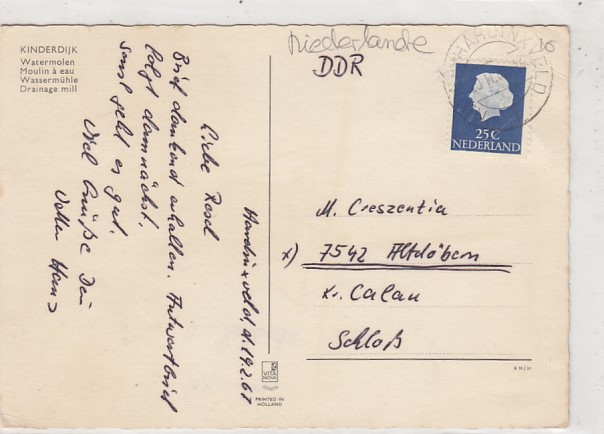 KINDERDIJK
Watermolen
Moulin à eau
Wassermühle
Drainage mill
Niederlande
DDR
HARDINXVELD
25 C
NEDERLAND
Hardinxveld, d. 19.2.67
Liebe Resel
Brief dankend erhalten. Antwortbrief
folgt demnächst.
Sonst geht es gut.
Viel Grüße Dein
Vetter Hans
M. Creszentia
x) 7542 Altdöbern
Kr. Calau
Schloß
VITA NOVA
PRINTED IN
HOLLAND